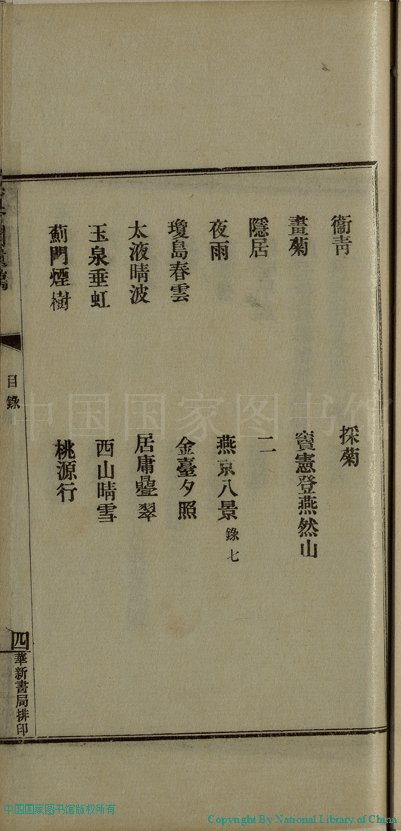 衞青　採菊
畫菊　竇憲登燕然山
隱居　二
夜雨　燕京八景 錄七
瓊島春雲　金臺夕照
太液晴波　居庸疊翠
玉泉垂虹　西山晴雪
薊門煙樹　桃源行
目錄
四
華新書局排印
中国国家图书馆
中国国家图书馆版权所有
Copyright By National Library of China